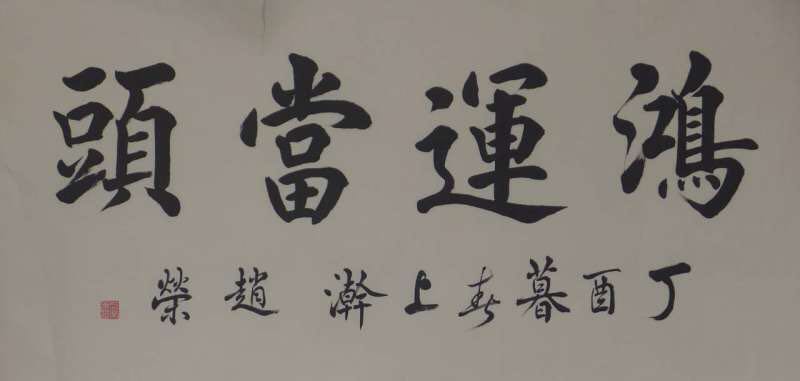 鴻運當頭
丁酉暮春上澣 趙榮